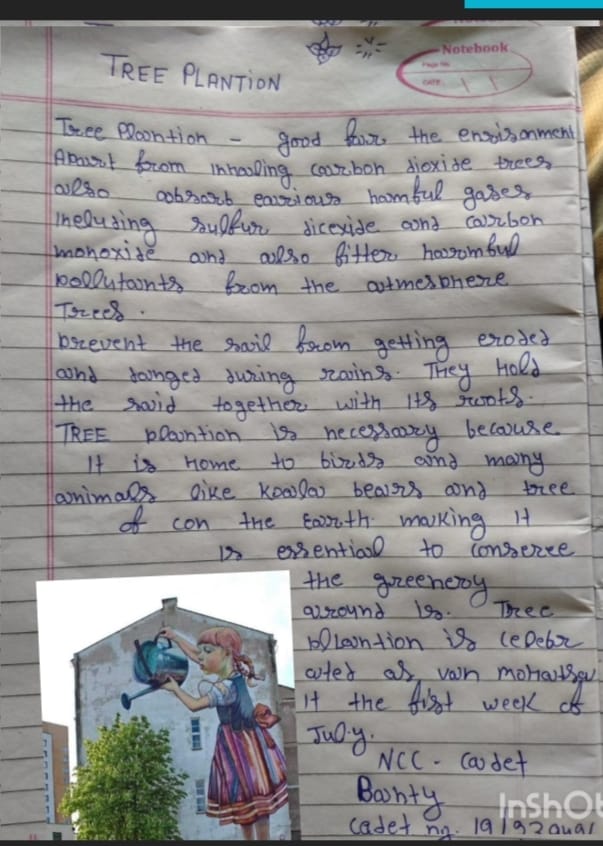 Notebook
Page No.
DATE:
TREE PLANTION
Tree Plantion - good for the environment
Apart from inhaling carbon dioxide trees
also absorb earrious hamful gases
Inelusing sulfur dicexide and carbon
monoxide and also fitter harombul
pollutants from the atmesphere
Trees.
prevent the sail from getting eroded
and danged during rains. They Hold
the said together with its roots.
TREE plantion is necessary because
It is Home to birds and many
animals like koala bears and tree
of con the Earth making It
is essential to conseree
the greenery
around is. Tree
plantion is cedebr
ated as van mohatsav
It the fist week of
July.
NCC - cadet
Banty
cadet no. 19/92
InShO